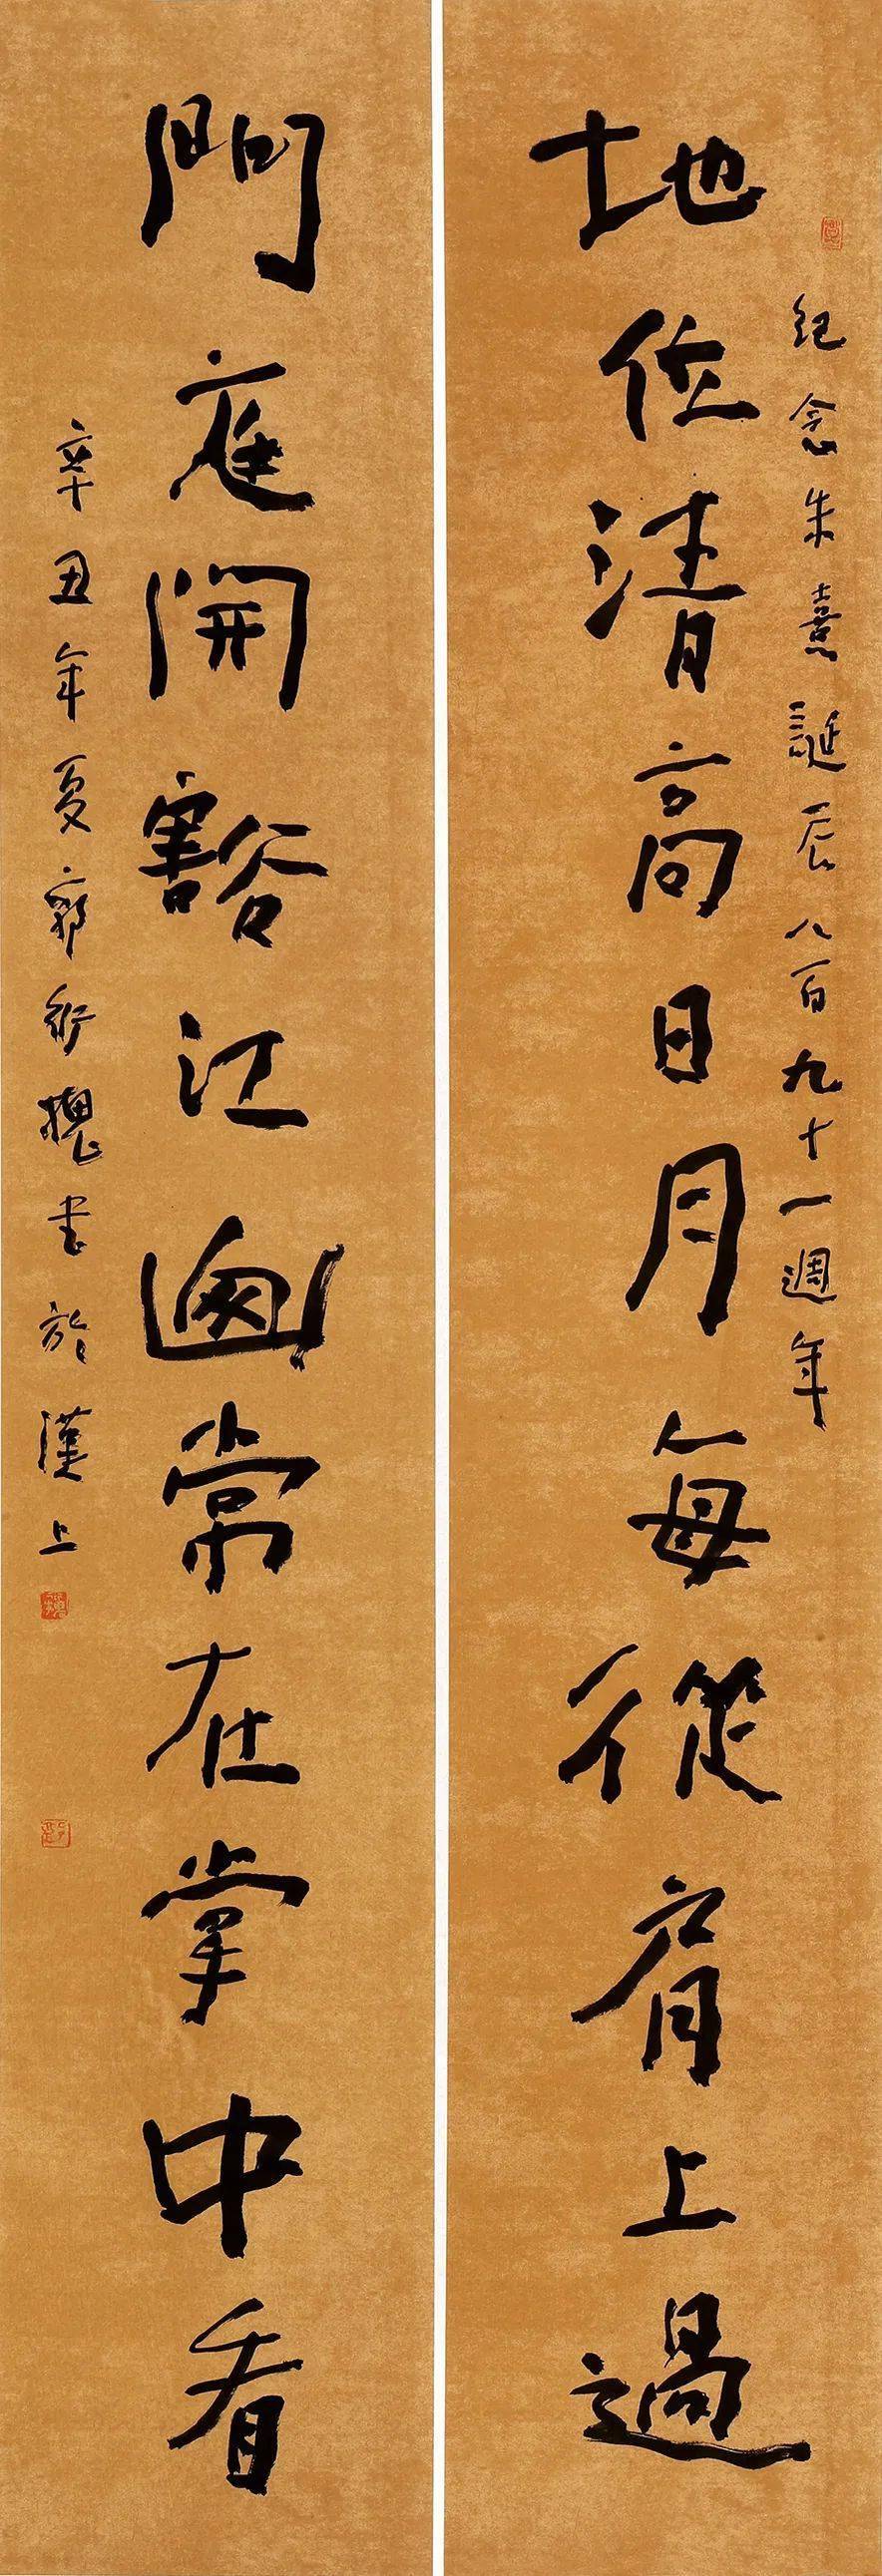 紀念朱熹誕辰八百九十一週年
地位清高日月每從肩上過
門庭開豁江山常在掌中看
辛丑年夏郭書於漢上